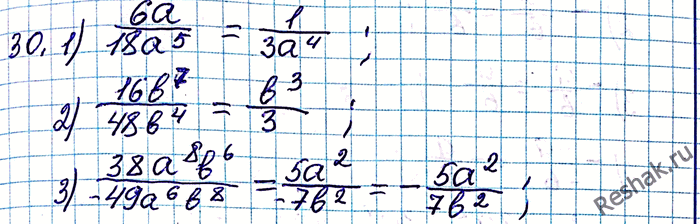 30. 1) 6a/18a⁵ = 1/3a⁴ ;
2) 16b⁷/48b⁴ = b³/3 ;
3) 38a⁸b⁶/-49a⁶b⁸ = 5a²/-7b² = - 5a²/7b² ;
Reshak.ru